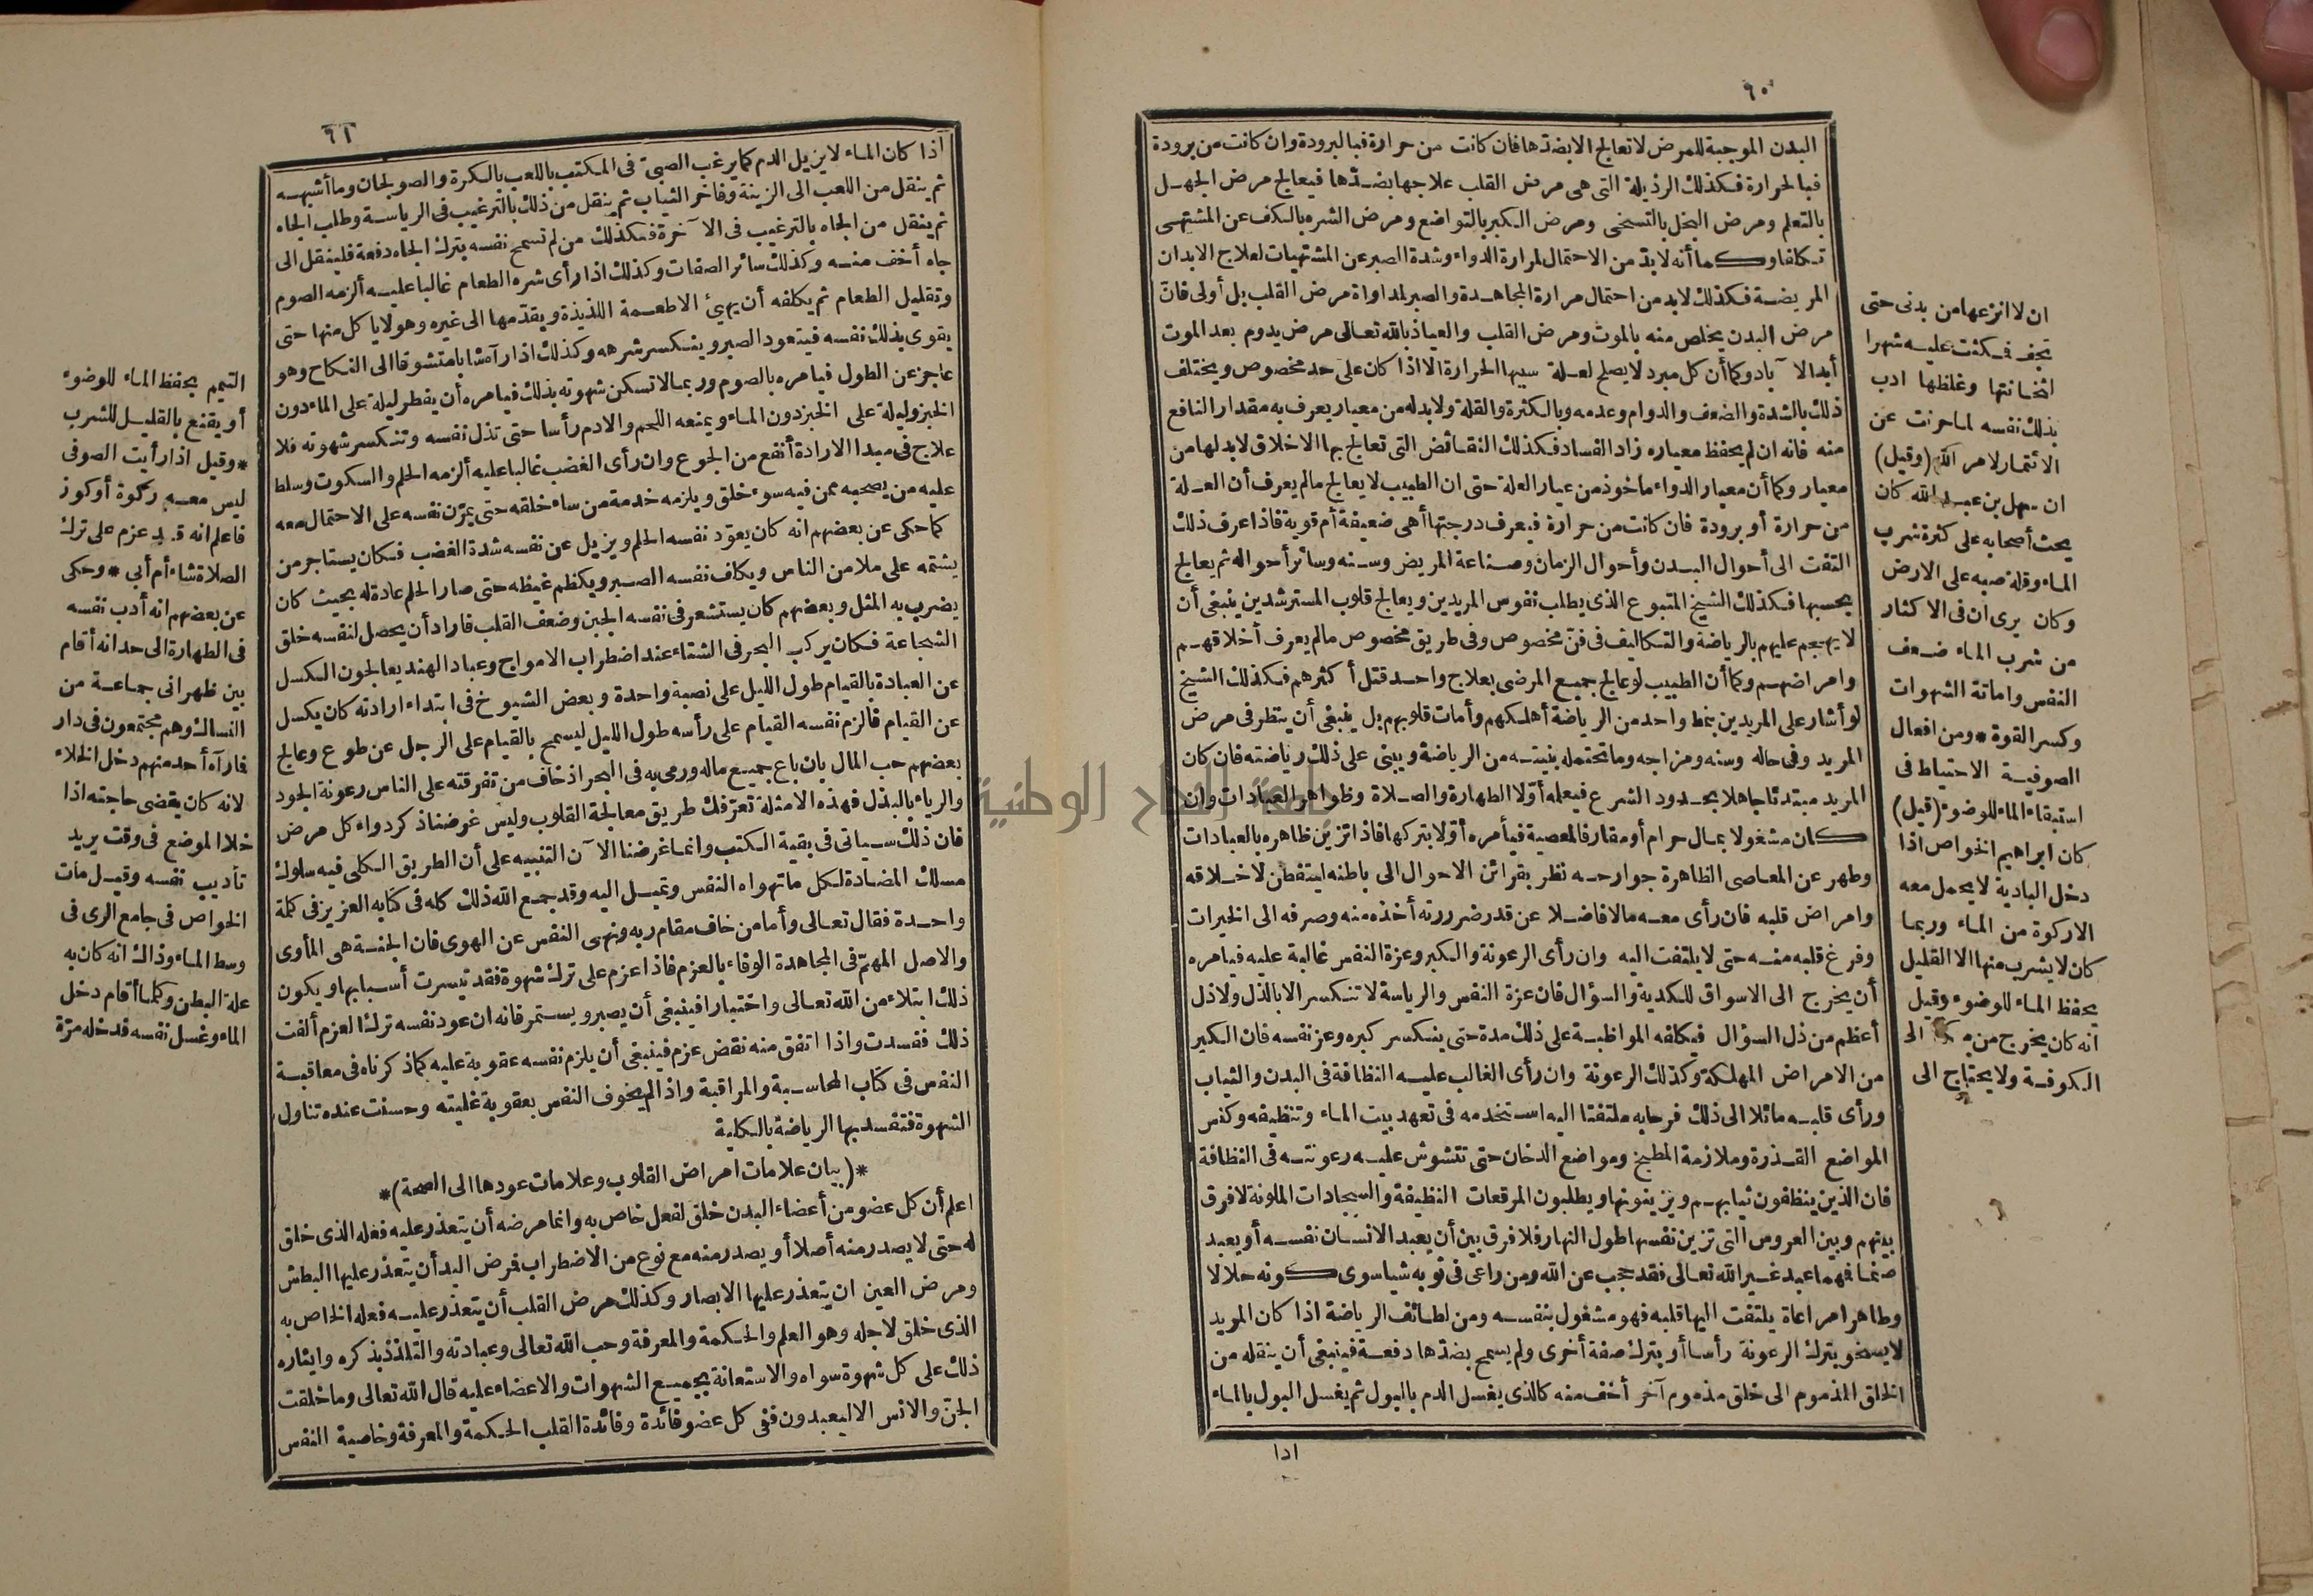 ٦٠
البدن الموجبة للمرض لا تعالج الا بضدها فان كانت من حرارة فبالبرودة وان كانت من برودة
فبالحرارة فكذلك الرذيلة التى هى مرض القلب علاجها بضدها فيعالج مرض الجهل
بالتعلم ومرض البخل بالتسخى ومرض الكبر بالتواضع ومرض الشره بالكف عن المشتهى
تكلفا وكما أنه لابد من الاحتمال لمرارة الدواء وشدة الصبر عن المشتهيات لعلاج الابدان
المريضة فكذلك لابد من احتمال مرارة المجاهدة والصبر لمداواة مرض القلب بل أولى فان
مرض البدن يخلص منه بالموت ومرض القلب والعياذ بالله تعالى مرض يدوم بعد الموت
أبد الآباد وكما أن كل مبرد لا يصلح لعلة سببها الحرارة الا اذا كان على حد مخصوص ويختلف
ذلك بالشدة والضعف والدوام وعدمه وبالكثرة والقلة ولابد له من معيار يعرف به مقدار النافع
منه فانه ان لم يحفظ معياره زاد الفساد فكذلك النقائض التى تعالج بها الاخلاق لابد لها من
معيار وكما أن معيار الدواء مأخوذ من عيار العلة حتى ان الطبيب لا يعالج ما لم يعرف أن العلة
من حرارة أو برودة فان كانت من حرارة فيعرف درجتها أهى ضعيفة أم قوية فاذا عرف ذلك
التفت الى أحوال البدن وأحوال الزمان وصناعة المريض وسنه وسائر أحواله ثم يعالج
بحسبها فكذلك الشيخ المتبوع الذى يطلب نفوس المريدين ويعالج قلوب المسترشدين ينبغى أن
لا يهجم عليهم بالرياضة والتكاليف فى فن مخصوص وفى طريق مخصوص ما لم يعرف أخلاقهم
وامراضهم وكما أن الطبيب لو عالج جميع المرضى بعلاج واحد قتل أكثرهم فكذلك الشيخ
لو أشار على المريدين بنمط واحد من الرياضة أهلكهم وأمات قلوبهم بل ينبغى أن ينظر فى مرض
المريد وفى حاله وسنه ومزاجه وما تحتمله بنيته من الرياضة ويبنى على ذلك رياضته فان كان
المريد مبتدئا جاهلا بحدود الشرع فيعلمه أولا الطهارة والصلاة وظواهر العبادات وان
كان مشغولا بمال حرام أو مقارفا لمعصية فيأمره أولا بتركها فاذا تزين ظاهره بالعبادات
وطهر عن المعاصى الظاهرة جوارحه نظر بقرائن الاحوال الى باطنه ليتفطن لاخلاقه
وامراض قلبه فان رأى معه مالا فاضلا عن قدر ضرورته أخذه منه وصرفه الى الخيرات
وفرغ قلبه منه حتى لا يلتفت اليه وان رأى الرعونة والكبر وعزة النفس غالبة عليه فيأمره
أن يخرج الى الاسواق للكدية والسؤال فان عزة النفس والرياسة لا تنكسر الا بالذل ولا ذل
أعظم من ذل السؤال فيكلفه المواظبة على ذلك مدة حتى ينكسر كبره وعز نفسه فان الكبر
من الامراض المهلكة وكذلك الرعونة وان رأى الغالب عليه النظافة فى البدن والثياب
ورأى قلبه مائلا الى ذلك فرحا به ملتفتا اليه استخدمه فى تعهد بيت الماء وتنظيفه وكنس
المواضع القذرة وملازمة المطبخ ومواضع الدخان حتى تتشوش عليه رعونته فى النظافة
فان الذين ينظفون ثيابهم ويزينونها ويطلبون المرقعات النظيفة والسجادات الملونة لا فرق
بينهم وبين العروس التى تزين نفسها طول النهار فلا فرق بين أن يعبد الانسان نفسه أو يعبد
صنما فهما عبد غير الله تعالى فقد حجب عن الله ومن راعى فى ثوبه شيأ سوى كونه حلالا
وطاهرا مراعاة يلتفت اليها قلبه فهو مشغول بنفسه ومن لطائف الرياضة اذا كان المريد
لا يسخو بترك الرعونة رأسا أو بترك صفة أخرى ولم يسمح بضدها دفعة فينبغى أن ينقله من
الخلق المذموم الى خلق مذموم آخر أخف منه كالذى يغسل الدم بالبول ثم يغسل البول بالماء
اذا
ان لا انزعها من بدنى حتى
تجف فمكثت عليه شهرا
لثخانتها وغلظها ادب
بذلك نفسه لما حرنت عن
الائتمار لامر الله (وقيل)
ان سهل بن عبد الله كان
يحث أصحابه على كثرة شرب
الماء وقلة صبه على الارض
وكان يرى ان فى الاكثار
من شرب الماء ضعف
النفس واماتة الشهوات
وكسر القوة * ومن افعال
الصوفية الاحتياط فى
استبقاء الماء للوضوء (قيل)
كان ابراهيم الخواص اذا
دخل البادية لا يحمل معه
الا ركوة من الماء وربما
كان لا يشرب منها الا القليل
يحفظ الماء للوضوء وقيل
انه كان يخرج من مكة الى
الكوفة ولا يحتاج الى
٦١
اذا كان الماء لا يزيل الدم كما يرغب الصبى فى المكتب باللعب بالكرة والصولجان وما أشبهه
ثم ينقل من اللعب الى الزينة وفاخر الثياب ثم ينقل من ذلك بالترغيب فى الرياسة وطلب الجاه
ثم ينقل من الجاه بالترغيب فى الآخرة فكذلك من لم تسمح نفسه بترك الجاه دفعة فلينقل الى
جاه أخف منه وكذلك سائر الصفات وكذلك اذا رأى شره الطعام غالبا عليه ألزمه الصوم
وتقليل الطعام ثم يكلفه أن يهيئ الاطعمة اللذيذة ويقدمها الى غيره وهو لا يأكل منها حتى
يقوى بذلك نفسه فيتعود الصبر وينكسر شرهه وكذلك اذا رآه شابا متشوقا الى النكاح وهو
عاجز عن الطول فيأمره بالصوم وربما لا تسكن شهوته بذلك فيأمره أن يفطر ليلة على الماء دون
الخبز وليلة على الخبز دون الماء ويمنعه اللحم والادم رأسا حتى تذل نفسه وتنكسر شهوته فلا
علاج فى مبدا الارادة أنفع من الجوع وان رأى الغضب غالبا عليه ألزمه الحلم والسكوت وسلط
عليه من يصحبه ممن فيه سوء خلق ويلزمه خدمة من ساء خلقه حتى يمرن نفسه على الاحتمال معه
كما حكى عن بعضهم انه كان يعود نفسه الحلم ويزيل عن نفسه شدة الغضب فكان يستاجر من
يشتمه على ملا من الناس ويكلف نفسه الصبر ويكظم غيظه حتى صار الحلم عادة له بحيث كان
يضرب به المثل وبعضهم كان يستشعر فى نفسه الجبن وضعف القلب فاراد أن يحصل لنفسه خلق
الشجاعة فكان يركب البحر فى الشتاء عند اضطراب الامواج وعباد الهند يعالجون الكسل
عن العبادة بالقيام طول الليل على نصبة واحدة وبعض الشيوخ فى ابتداء ارادته كان يكسل
عن القيام فالزم نفسه القيام على رأسه طول الليل ليسمح بالقيام على الرجل عن طوع وعالج
بعضهم حب المال بان باع جميع ماله ورمى به فى البحر اذ خاف من تفرقته على الناس رعونة الجود
والرياء بالبذل فهذه الامثلة تعرفك طريق معالجة القلوب وليس غرضنا ذكر دواء كل مرض
فان ذلك سيأتى فى بقية الكتب وانما غرضنا الآن التنبيه على أن الطريق الكلى فيه سلوك
مسلك المضادة لكل ما تهواه النفس وتميل اليه وقد جمع الله ذلك كله فى كتابه العزيز فى كلمة
واحدة فقال تعالى وأما من خاف مقام ربه ونهى النفس عن الهوى فان الجنة هى المأوى
والاصل المهم فى المجاهدة الوفاء بالعزم فاذا عزم على ترك شهوة فقد تيسرت أسبابها ويكون
ذلك ابتلاء من الله تعالى واختبارا فينبغى أن يصبر ويستمر فانه ان عود نفسه ترك العزم ألفت
ذلك ففسدت واذا اتفق منه نقض عزم فينبغى أن يلزم نفسه عقوبة عليه كما ذكرناه فى معاقبة
النفس فى كتاب المحاسبة والمراقبة واذا لم يخوف النفس بعقوبة غلبته وحسنت عنده تناول
الشهوة فتفسد بها الرياضة بالكلية
*(بيان علامات امراض القلوب وعلامات عودها الى الصحة)*
اعلم أن كل عضو من أعضاء البدن خلق لفعل خاص به وانما مرضه أن يتعذر عليه فعله الذى خلق
له حتى لا يصدر منه أصلا أو يصدر منه مع نوع من الاضطراب فمرض اليد أن يتعذر عليها البطش
ومرض العين ان يتعذر عليها الابصار وكذلك مرض القلب أن يتعذر عليه فعله الخاص به
الذى خلق لاجله وهو العلم والحكمة والمعرفة وحب الله تعالى وعبادته والتلذذ بذكره وايثاره
ذلك على كل شهوة سواه والاستعانة بجميع الشهوات والاعضاء عليه قال الله تعالى وما خلقت
الجن والانس الا ليعبدون ففى كل عضو فائدة وفائدة القلب الحكمة والمعرفة وخاصية النفس
التيمم يحفظ الماء للوضوء
أو يقنع بالقليل للشرب
* وقيل اذا رأيت الصوفى
ليس معه ركوة أو كوز
فاعلم انه قد عزم على ترك
الصلاة شاء أم أبى * وحكى
عن بعضهم انه أدب نفسه
فى الطهارة الى حد انه أقام
بين ظهرانى جماعة من
النساك وهم مجتمعون فى دار
فما رآه أحد منهم دخل الخلاء
لانه كان يقضى حاجته اذا
خلا الموضع فى وقت يريد
تأديب نفسه وقيل مات
الخواص فى جامع الرى فى
وسط الماء وذاك انه كان به
علة البطن وكلما أقام دخل
الماء وغسل نفسه فدخله مرة
جامعة النجاح الوطنية